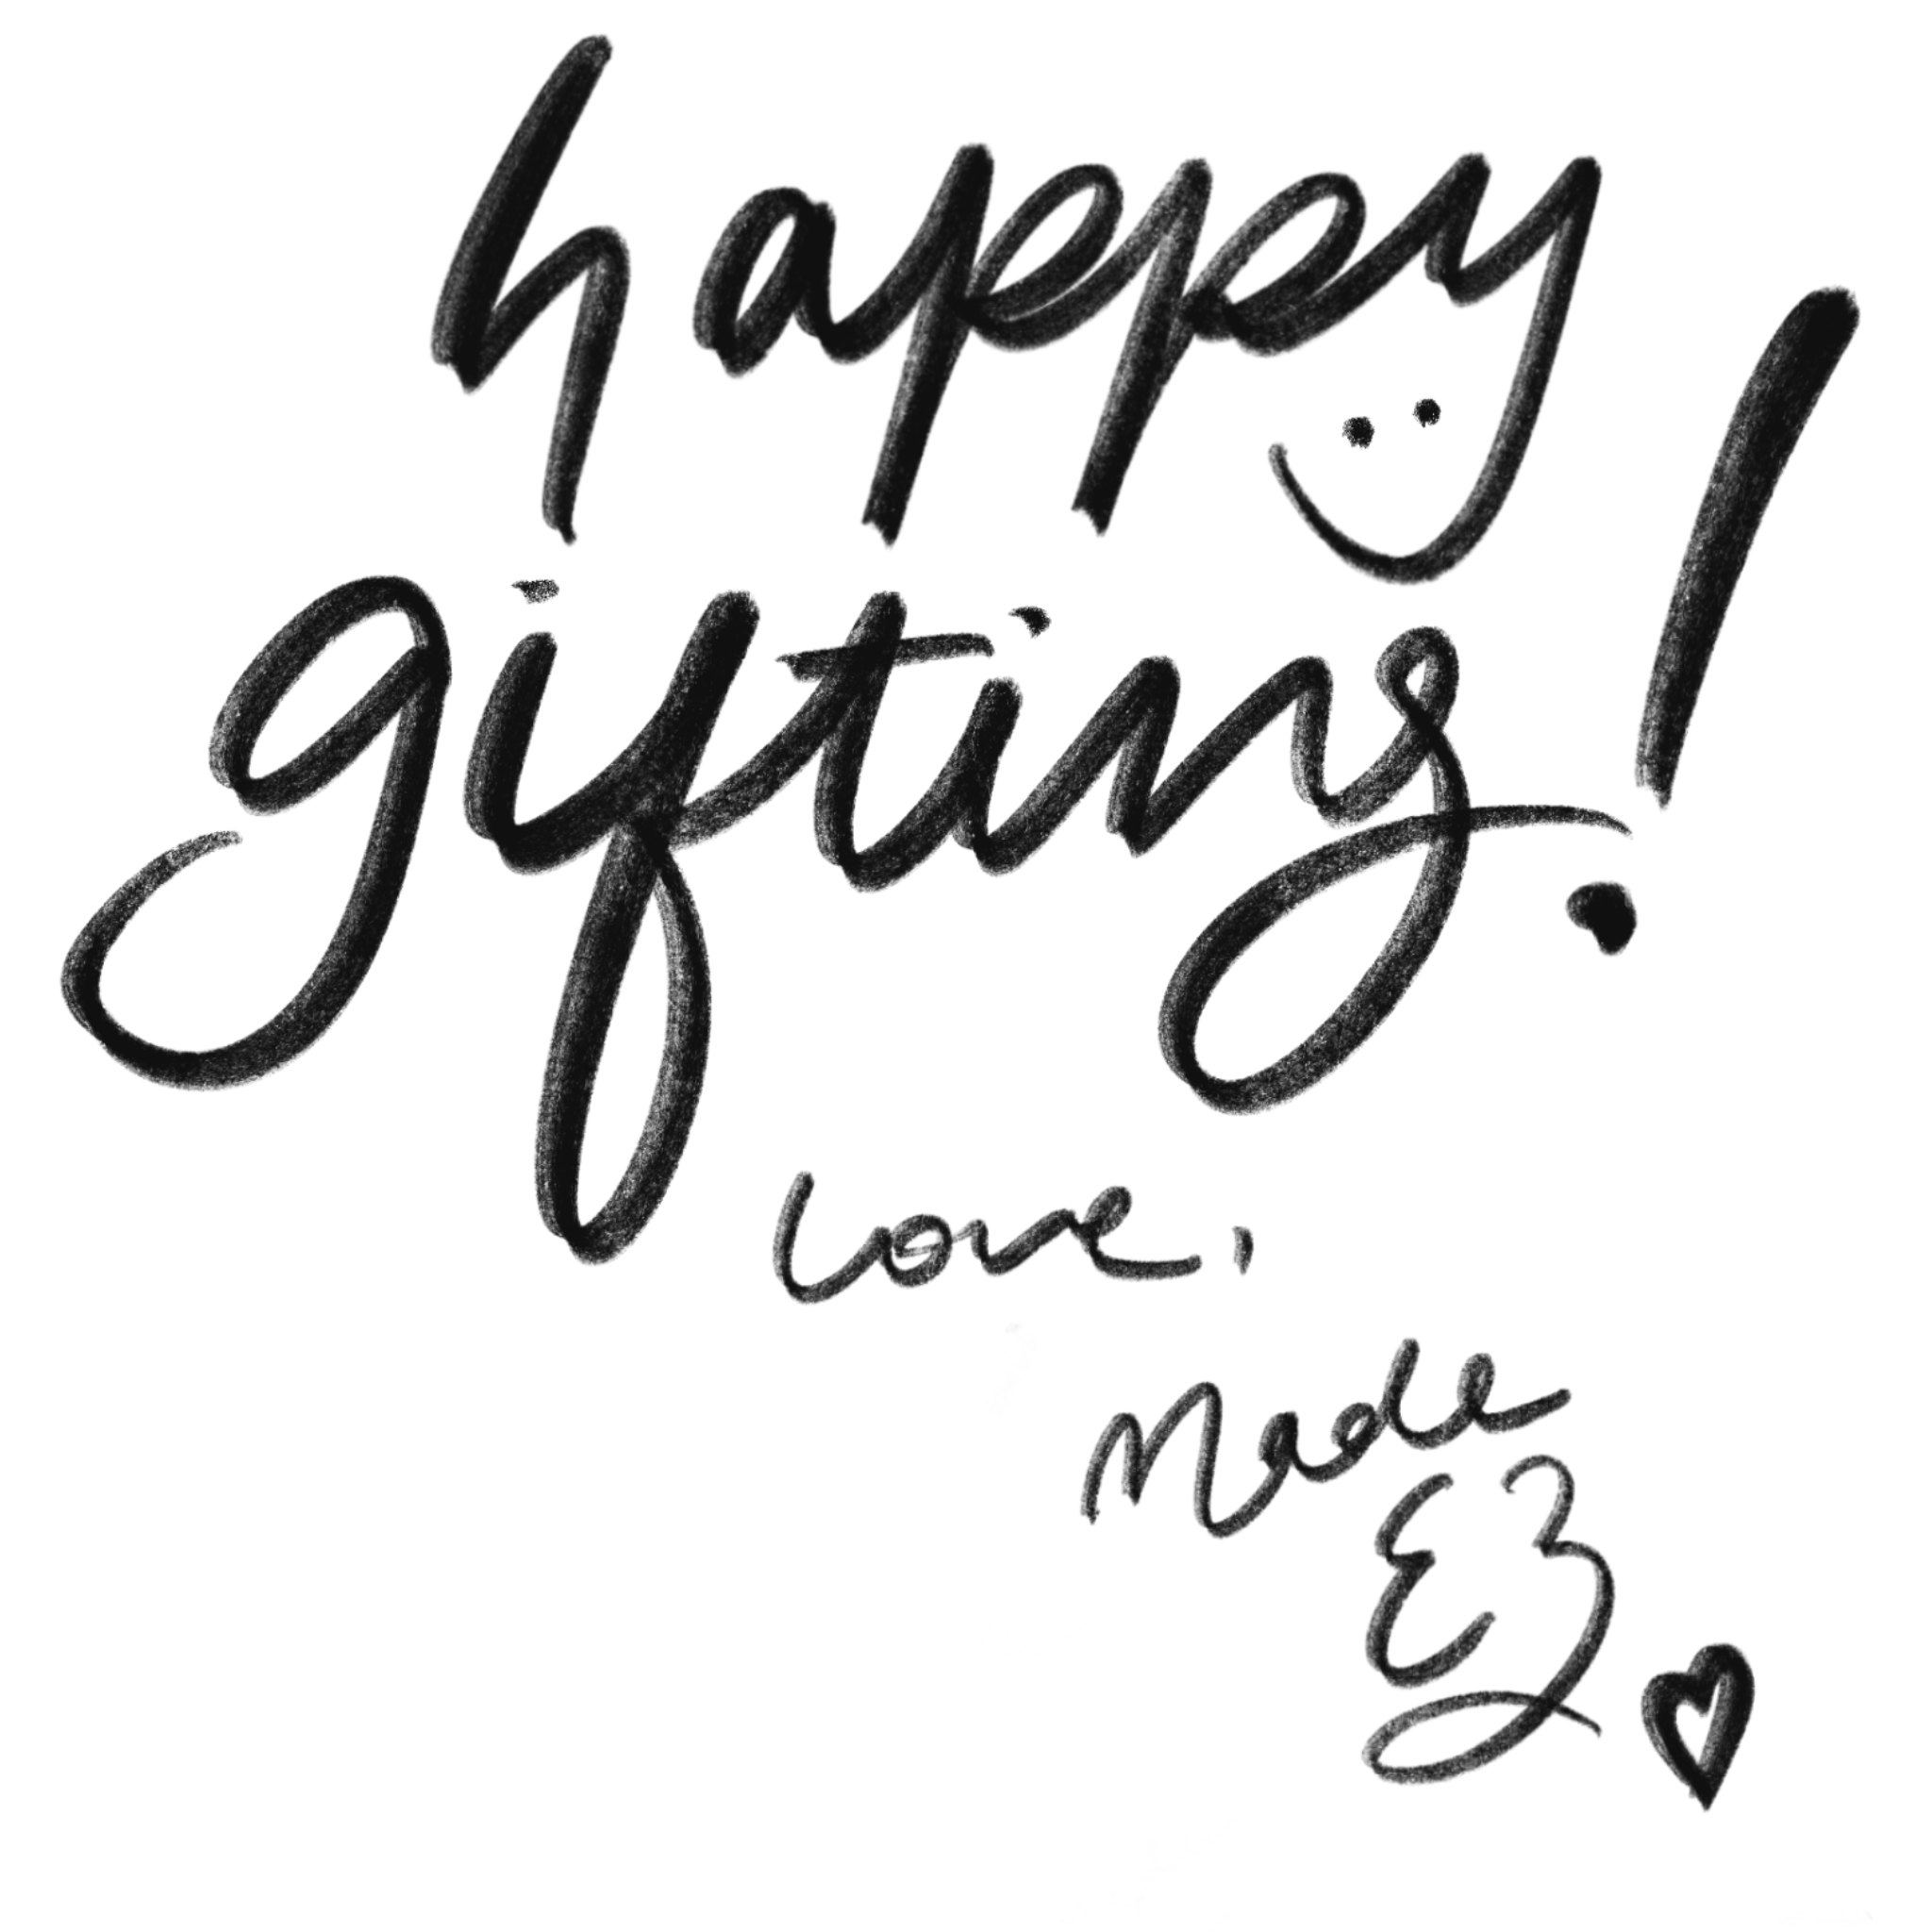 happy
gifting!
love,
Made
EZ